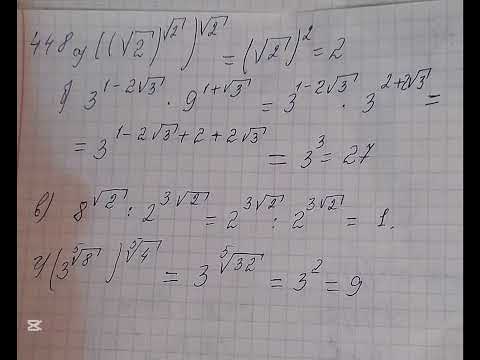 448 а) ((√2)^√2)^√2 = (√2)^2 = 2
б) 3^(1-2√3) · 9^(1+√3) = 3^(1-2√3) · 3^(2+2√3) =
= 3^(1-2√3+2+2√3) = 3^3 = 27
в) 8^√2 : 2^(3√2) = 2^(3√2) : 2^(3√2) = 1.
г) (3^(⁵√8))^(⁵√4) = 3^(⁵√32) = 3^2 = 9